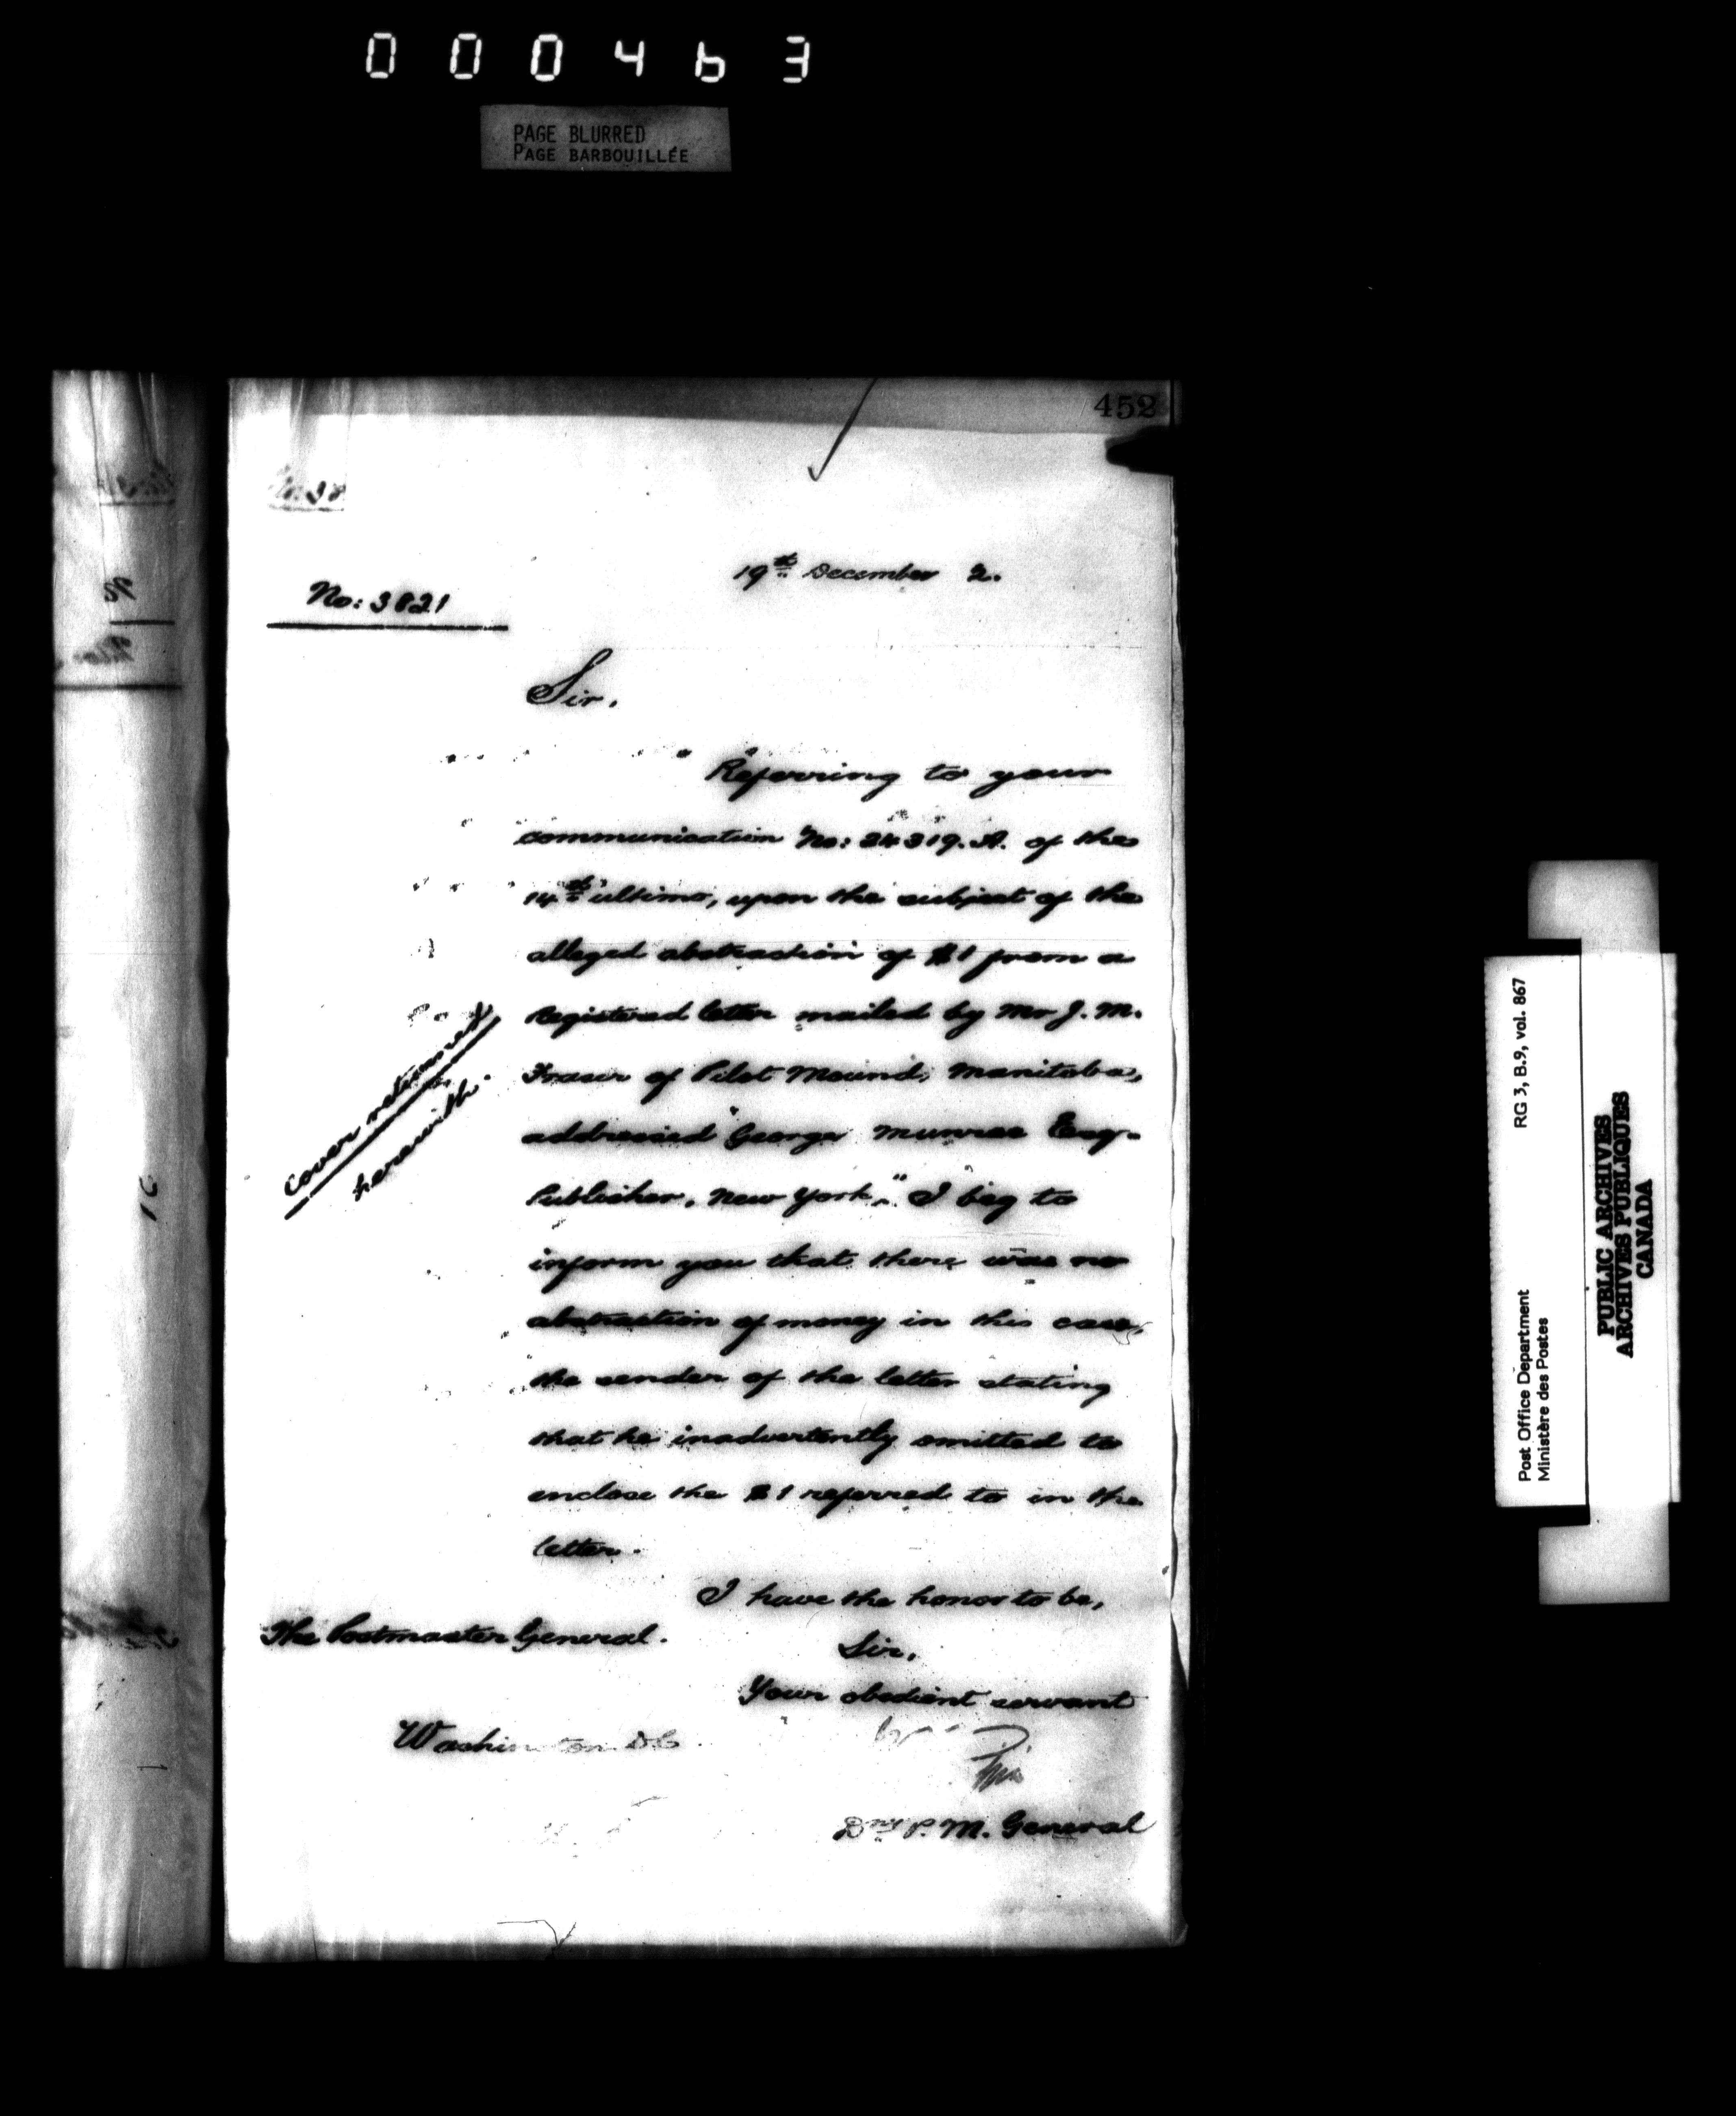 000463
PAGE BLURRED
PAGE BARBOUILLÉE
452
19th December 2.
No: 3821
Sir,
Referring to your
communication No: 24319. A. of the
14th ultimo, upon the subject of the
alleged abstraction of $1 from a
Registered letter mailed by Mr J. M.
Fraser of Pilot Mound, Manitoba,
addressed George Munroe Esq-
Publisher, New York," I beg to
inform you that there was no
abstraction of money in this case,
the sender of the letter stating
that he inadvertently omitted to
enclose the $1 referred to in the
letter.
cover returned
herewith.
I have the honor to be,
The Postmaster General.
Sir,
Your obedient servant
Washington D.C.
Dny P. M. General
Post Office Department
Ministère des Postes
RG 3, B.9, vol. 867
PUBLIC ARCHIVES
ARCHIVES PUBLIQUES
CANADA